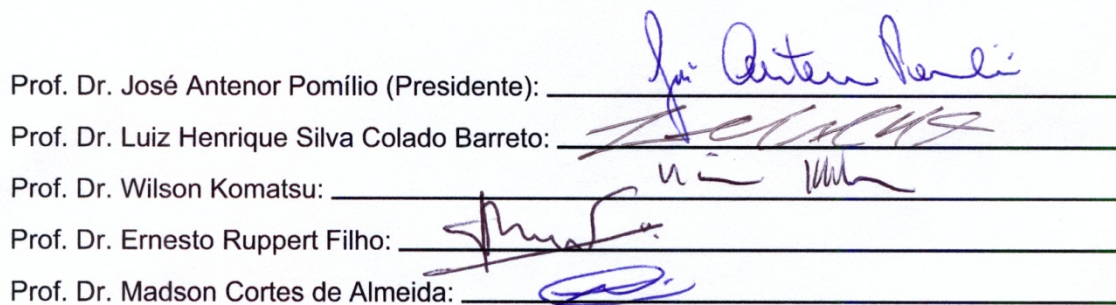 José Antenor Pomílio
Prof. Dr. José Antenor Pomílio (Presidente):
Prof. Dr. Luiz Henrique Silva Colado Barreto:
Prof. Dr. Wilson Komatsu:
Prof. Dr. Ernesto Ruppert Filho:
Prof. Dr. Madson Cortes de Almeida: